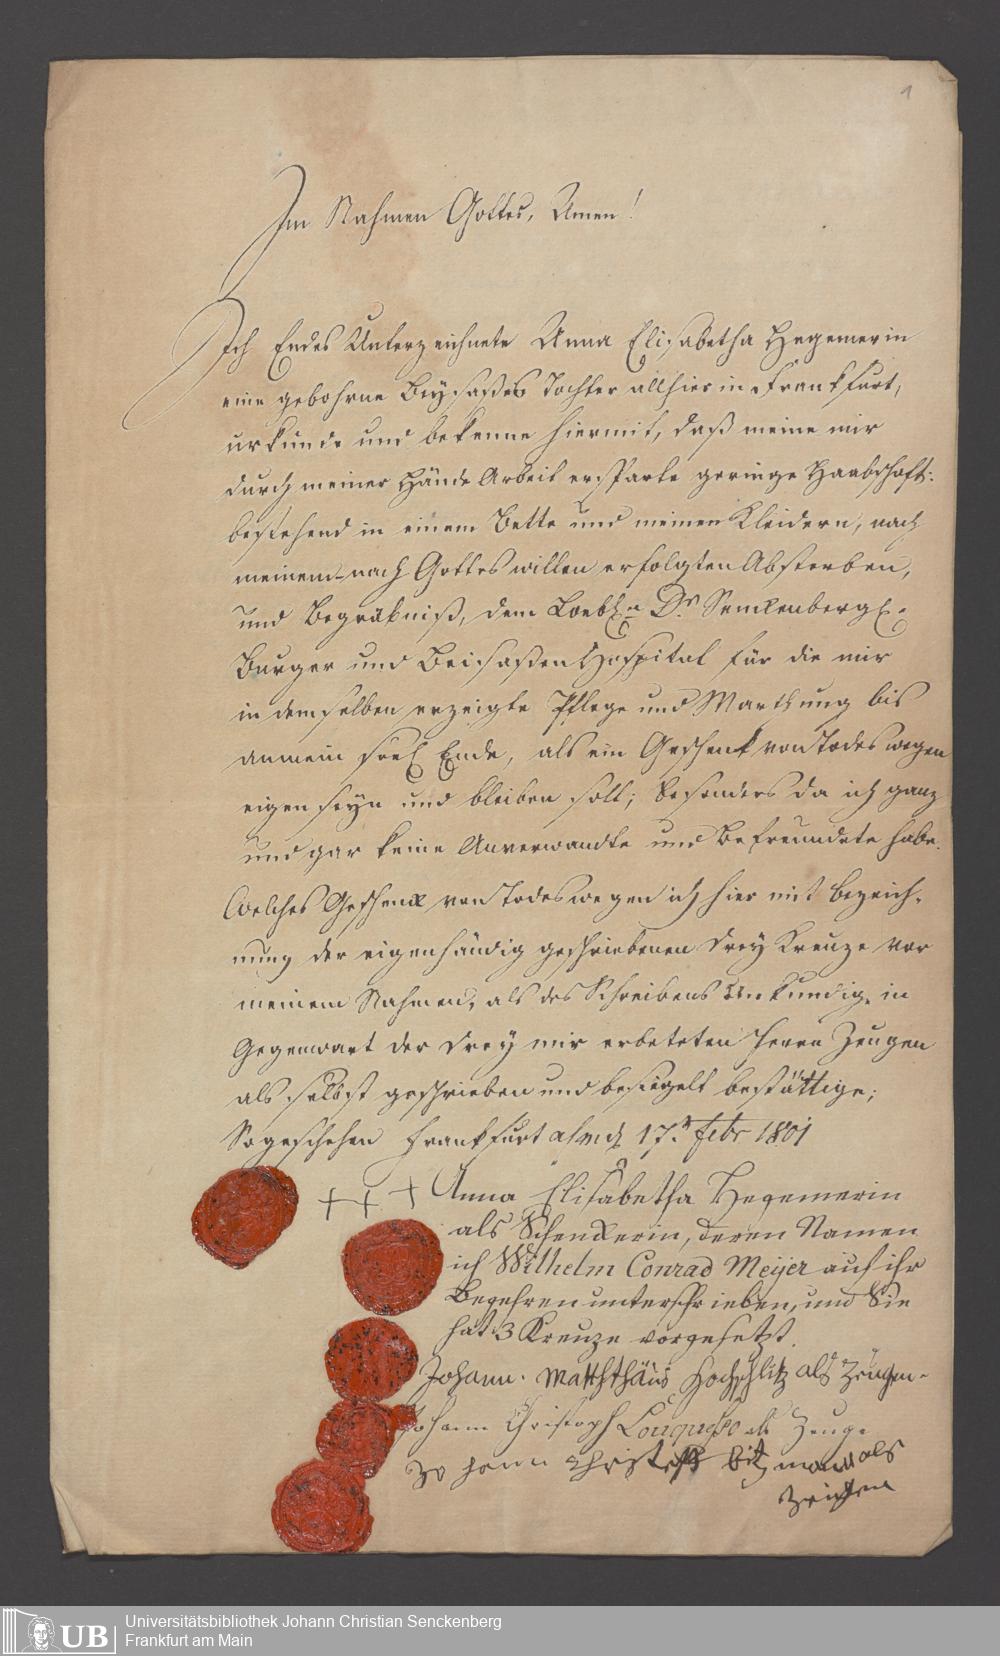 1
Im Nahmen Gottes, Amen!
Ich Endes Unterzeichnete Anna Elisabetha Hegemerin
eine gebohrne Beysaßes Tochter allhier in Franckfurt,
urkunde und bekenne hiermit, daß meine mir
durch meiner Hände Arbeit ersparte geringe Haabschaft:
bestehend in einem Bette und meinen Kleidern, nach
meinem nach Gottes willen erfolgten Absterben,
und Begräbniß, dem Loebl. Dr. Senckenbergl.
Burger und Beisaßen Hospital für die mir
in demselben erzeigte Pflege und Warthung bis
an mein seel Ende, als ein Geschenk von Todes wegen
eigen seyn und bleiben soll; besonders da ich ganz
und gar keine Anverwandte und Befreundete habe.
Welches Geschenk von Todes wegen ich hier mit bezeich-
nung der eigenhändig geschriebenen drey Kreuze vor
meinem Nahmen, als des Schreibens Unkundig, in
Gegenwart der drey mir erbetenen Herrn Zeugen
als selbst geschrieben und besiegelt bestättige;
So geschehen Franckfurt 17. Febr 1801
+ + + Anna Elisabetha Hegemerin
als Schenkerin, deren Namen
ich Wilhelm Conrad Meijer auf ihr
Begehren unterschrieben, und Sie
hat 3 Kreuze vorgesetzt.
Johann. Matththäus Hochschlitz als Zeugen.
Johann Christoph als Zeuge
Johann Christoff bitzmann als
Zeugen
UB
Universitätsbibliothek Johann Christian Senckenberg
Frankfurt am Main